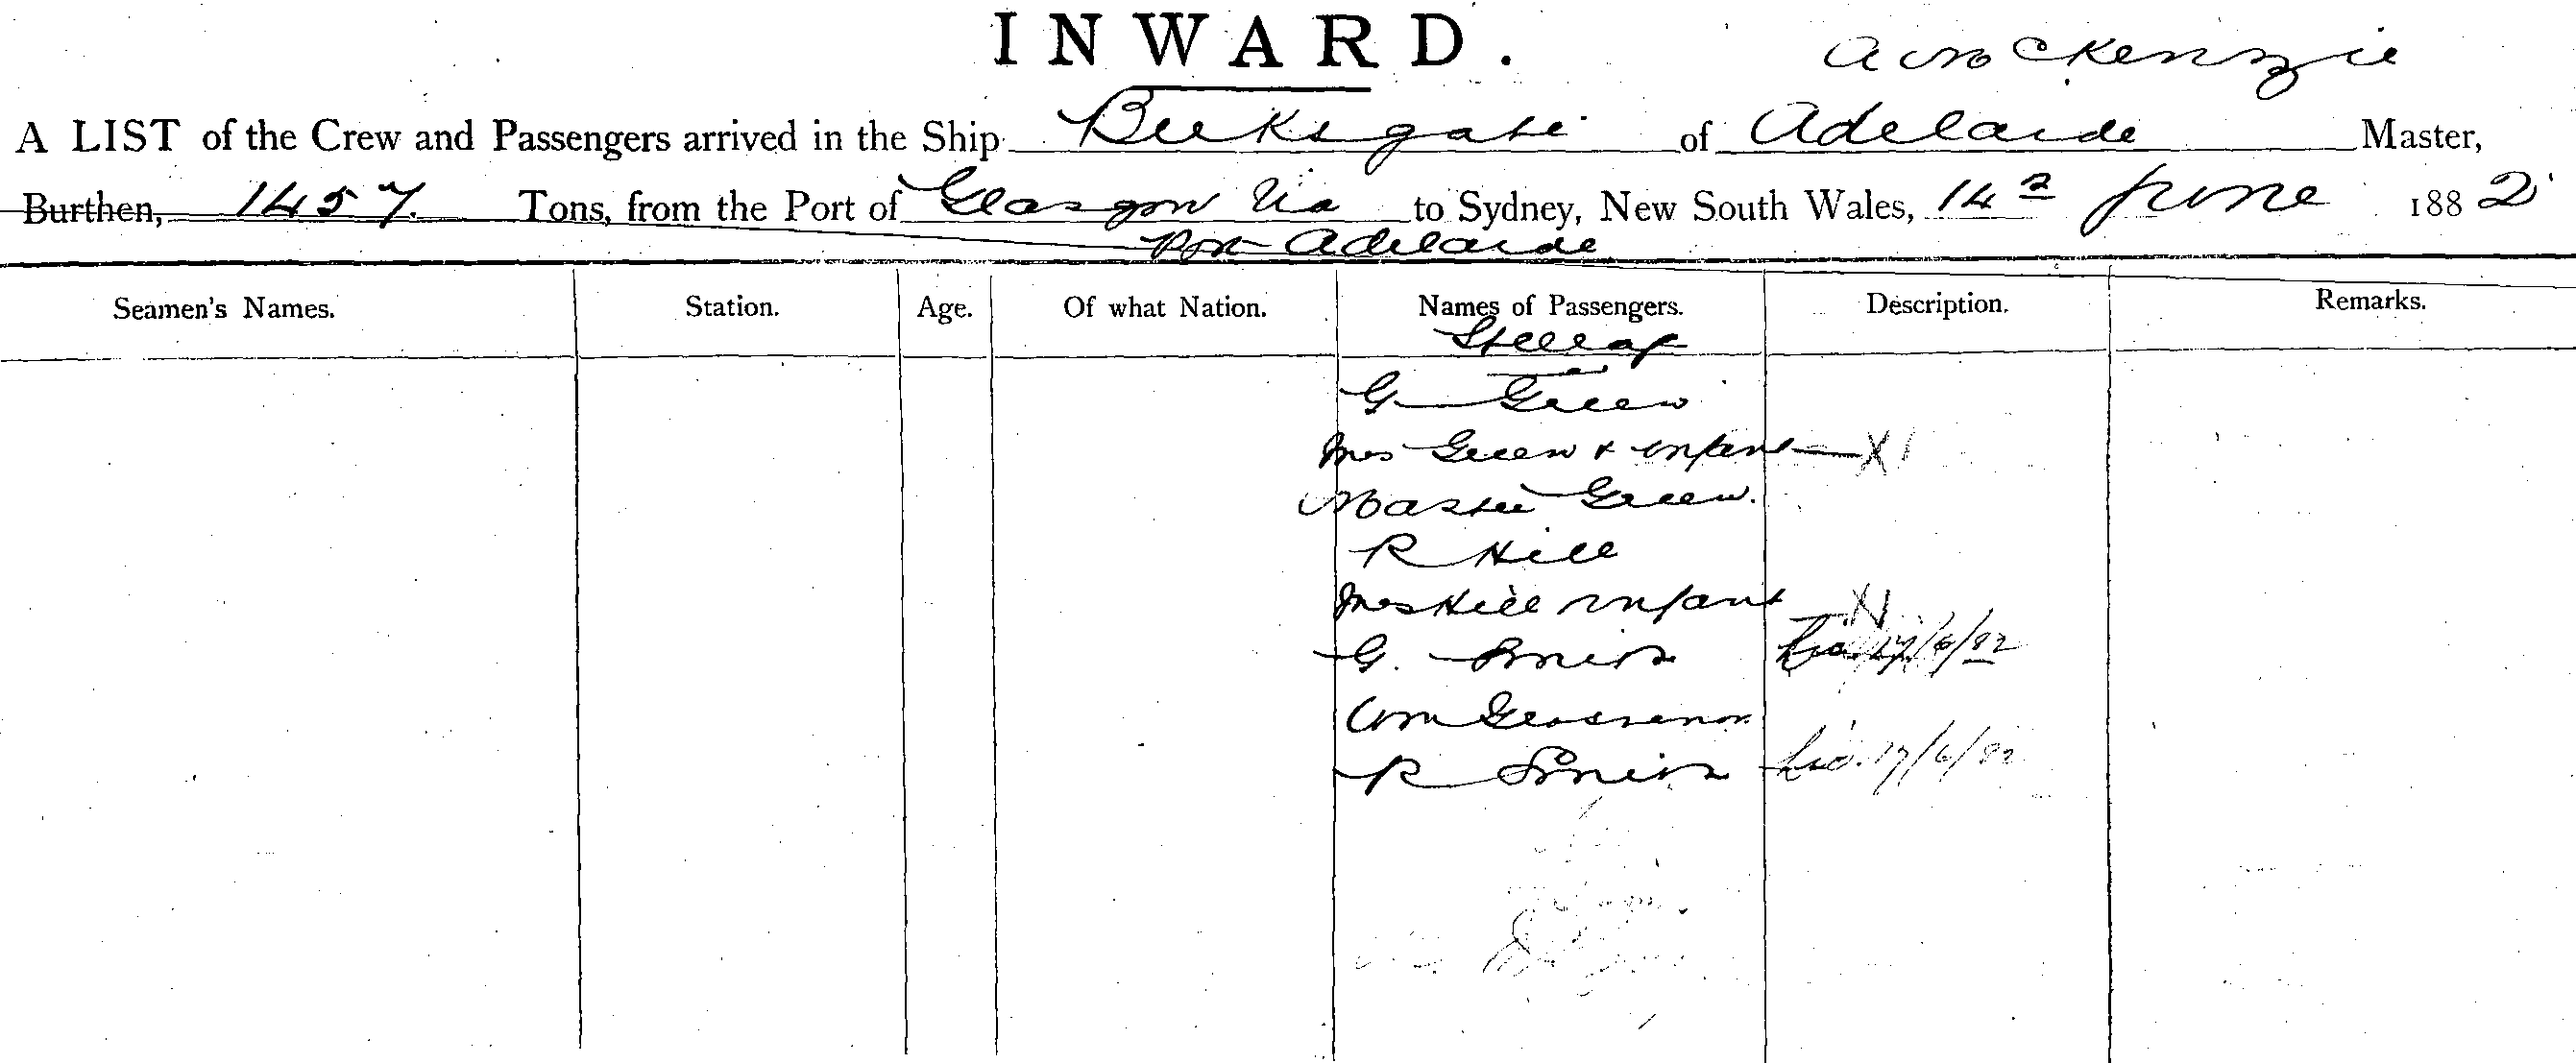 INWARD.
A McKenzie
A LIST of the Crew and Passengers arrived in the Ship Beeksgate of Adelaide Master,
Burthen, 1457 Tons, from the Port of Glasgow Via to Sydney, New South Wales, 14 June 1882
Port Adelaide
Seamen's Names. Station. Age. Of what Nation. Names of Passengers. Description. Remarks.
G Green
Mrs Green & infant X
Master Green.
R Hill
Mrs Hill infant X
G. Smith 17/6/82
Wm Grosvenor
R Smith 17/6/82